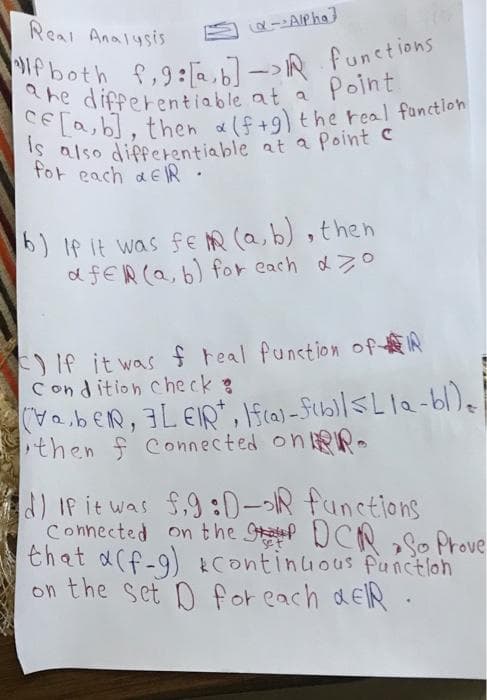 Real Analysis (α->Alpha)
a) If both f,g:[a,b]->ℝ functions
are differentiable at a Point
c∈[a,b], then α(f+g) the real function
is also differentiable at a Point c
for each α∈ℝ.
b) If it was f∈ℝ(a,b), then
αf∈ℝ(a,b) for each α≥0
c) If it was f real function of ℝ
Condition check:
(∀a,b∈ℝ, ∃L∈ℝ⁺, |f(a)-f(b)|≤L|a-b|).
,then f Connected on ℝ.
d) If it was f,g:D->ℝ functions
Connected on the set D⊂ℝ, So Prove
that α(f-g) continuous function
on the set D for each α∈ℝ.